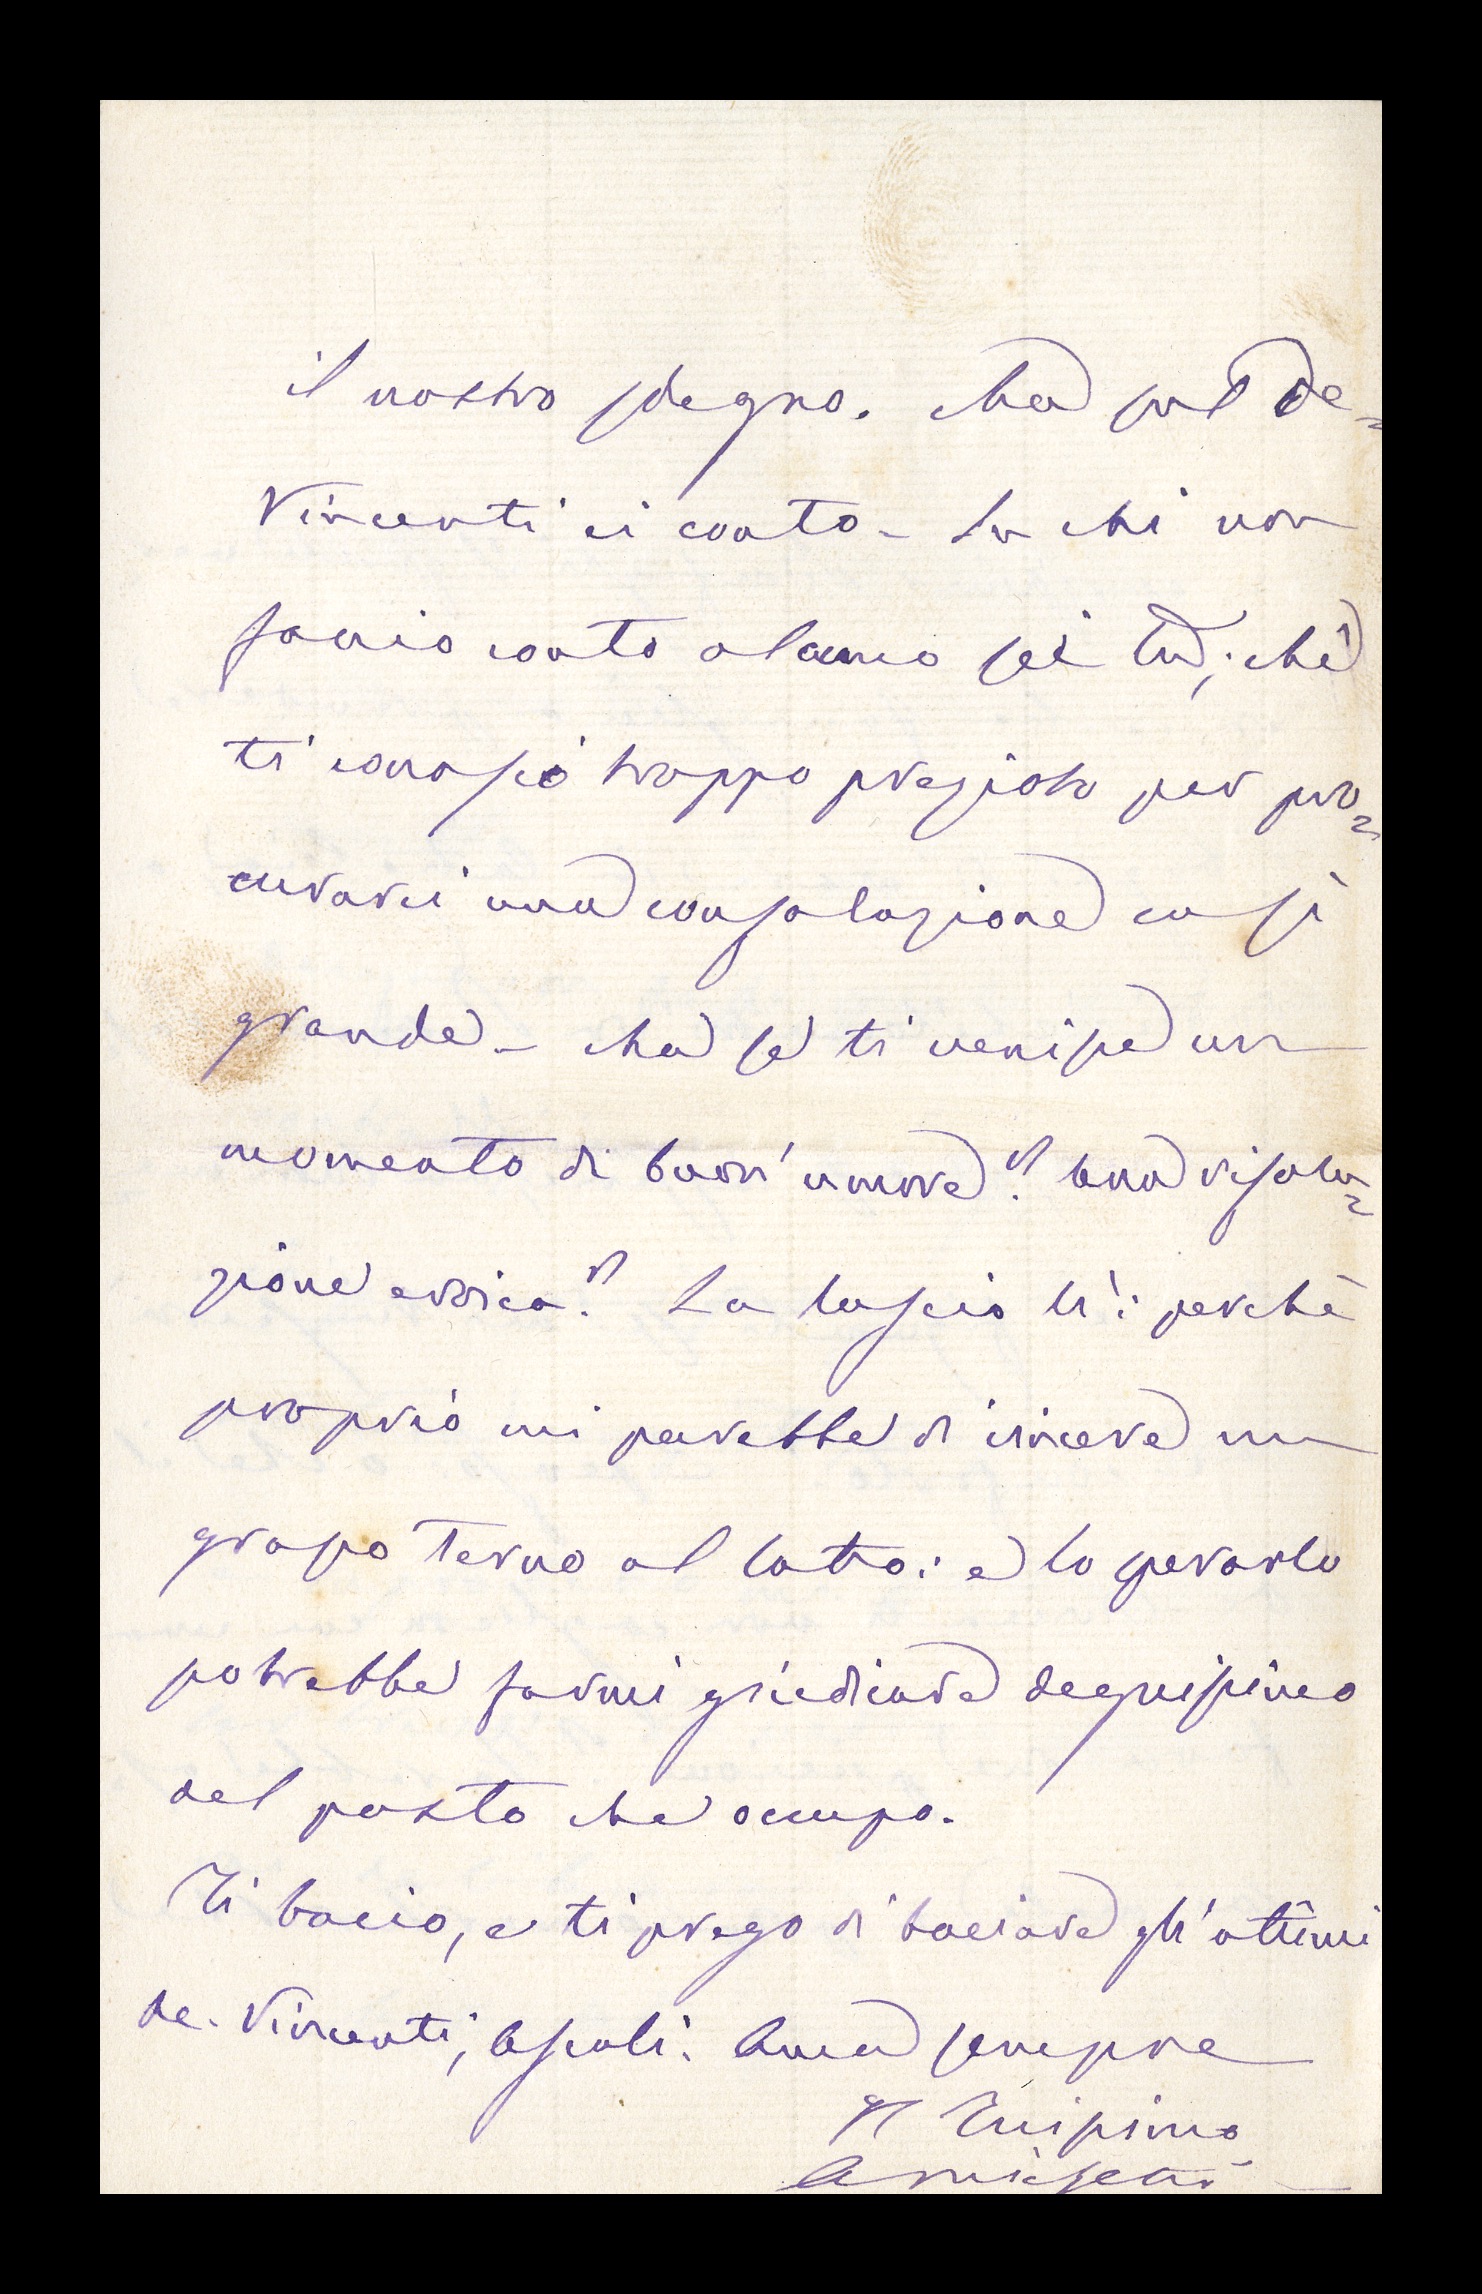 il nostro sdegno. Ma sul De=
Vincenti ci conto – Su chi non
faccio conto alcuno sei tu; chè
ti conosco troppo pregiato per pro=
curarci una consolazione così
grande – Ma se ti venisse un
momento di buon'umore? una risolu=
zione eroica? La lascio lì: perchè
proprio mi parebbe di vincere un
grosso terno al lotto: e lo sperarlo
potrebbe farmi giudicare degnissimo
del posto che occupo.
Ti bacio, e ti prego di baciare gli ottimi
de. Vincenti, Ascoli. Ama sempre
il Tuissimo